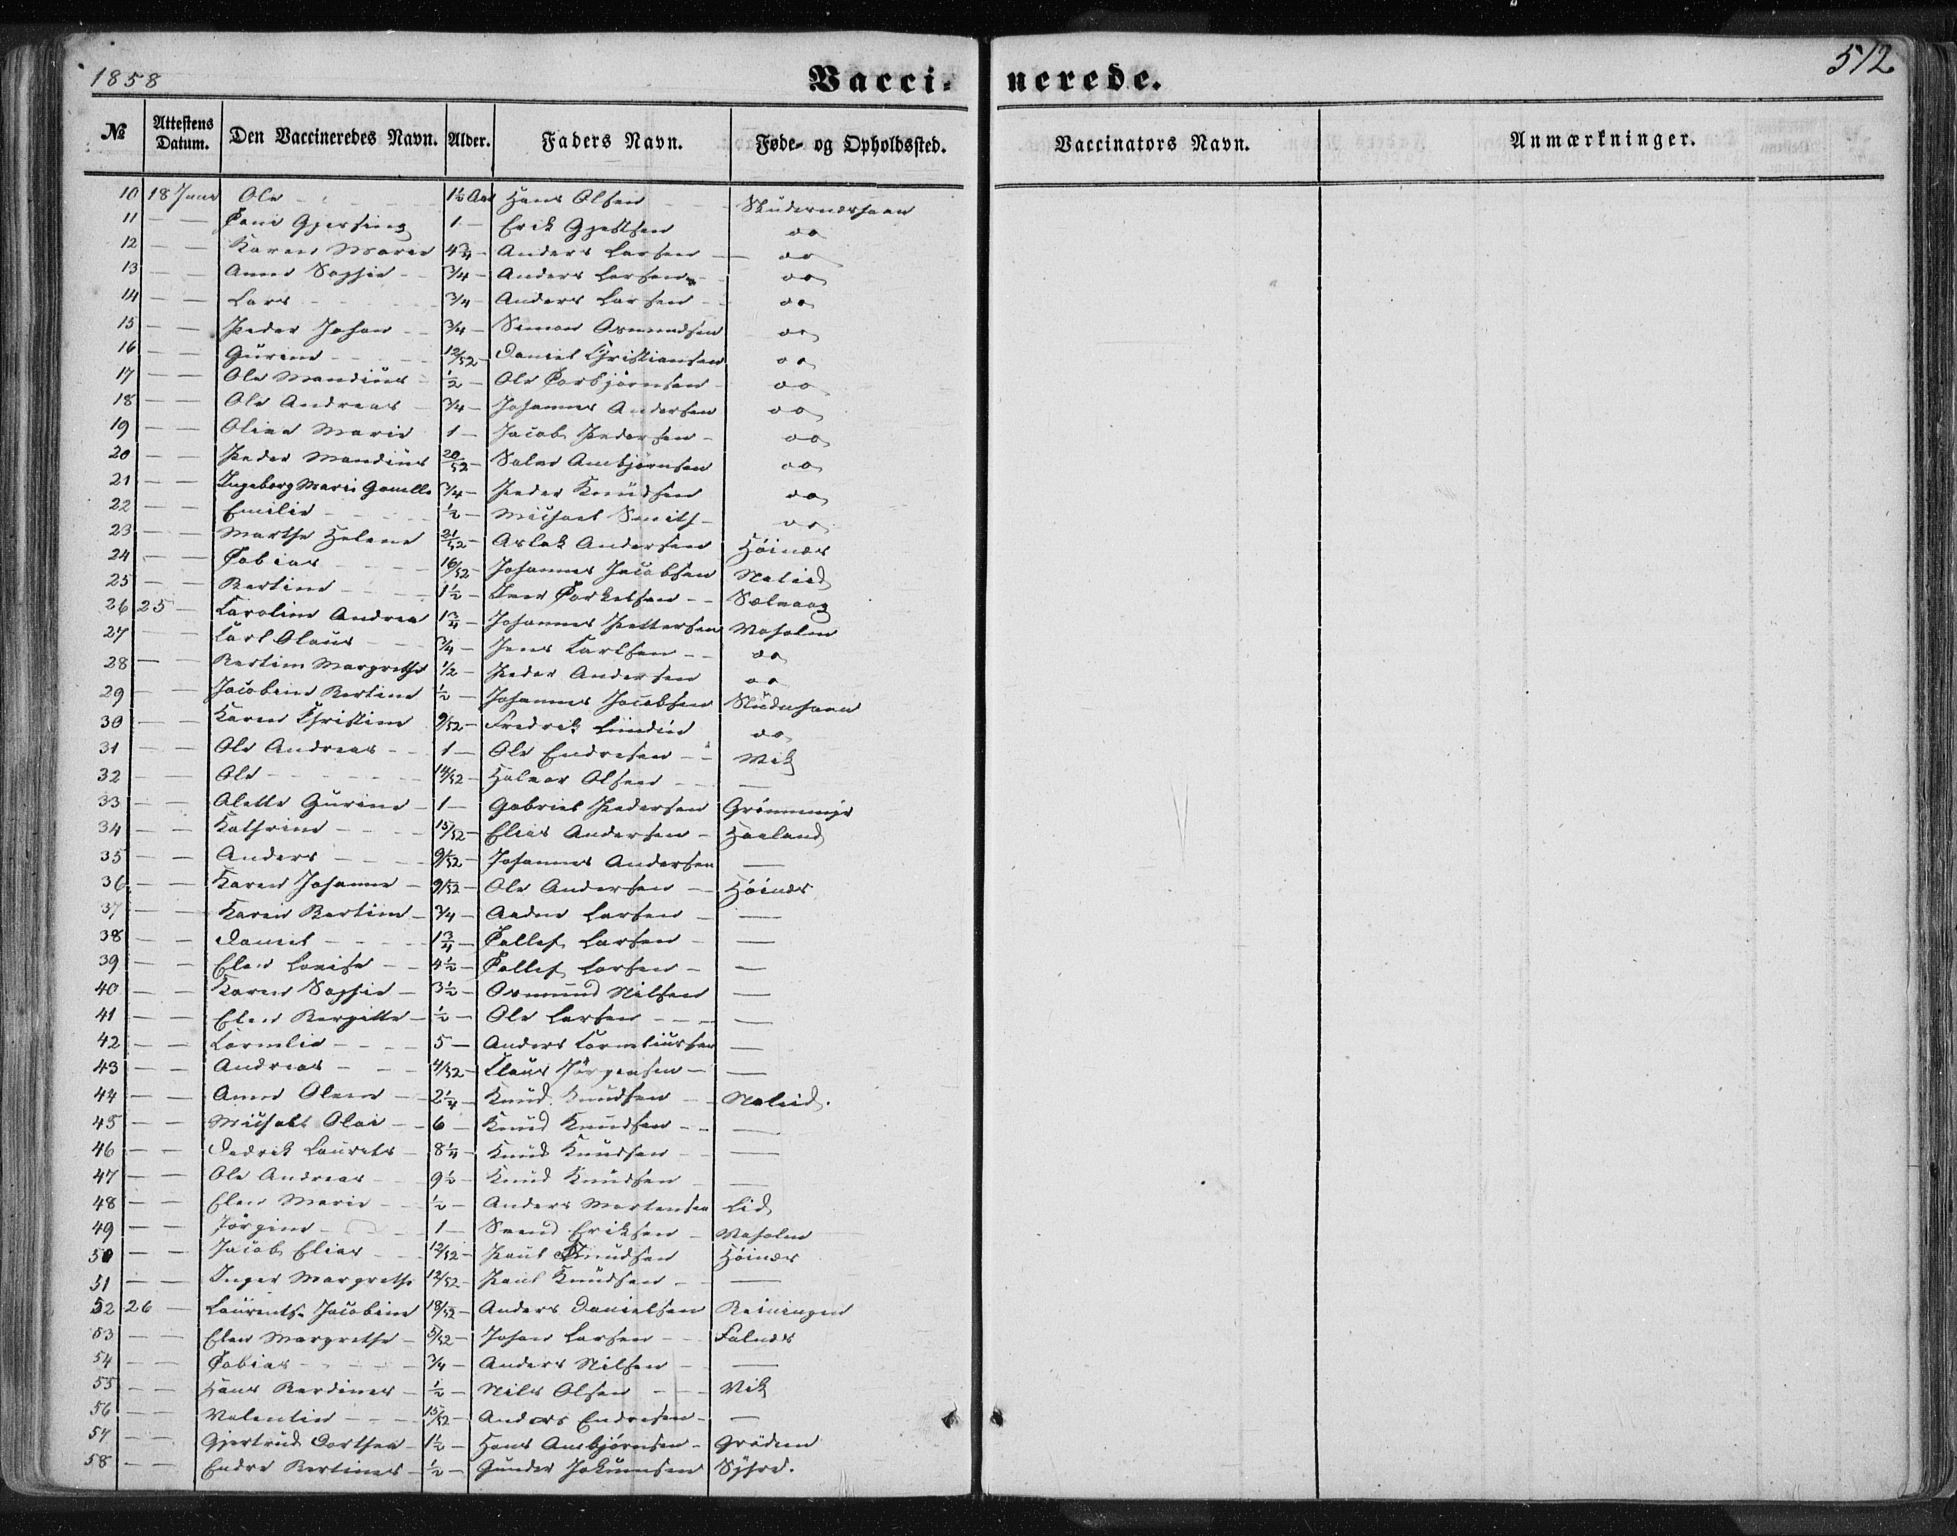 1858 Vaccinerede. 512
№ Attestens Datum. Den Vaccineredes Navn. Alder. Faders Navn. Føde- og Opholdssted. Vaccinators Navn. Anmærkninger.
10 18 Juni Ole 1½ Aar Hans Olsen Skudernæshavn
11 — — Gjersine 1 — Erik Gjestsen do
12 — — Karen Marie 4¾ — Anders Larsen do
13 — — Anne Sophie ¾ — Anders Larsen do
14 — — Lars ¾ — Anders Larsen do
15 — — Peder Johan ¾ — Simon Osmundsen do
16 — — Gurine 12/52 — Daniel Christiansen do
17 — — Ole Mandius ½ — Ole Torbjørnsen do
18 — — Ole Andreas ¾ — Johannes Andersen do
19 — — Oline Marie 1 — Jacob Pedersen do
20 — — Peder Mandius 20/52 — Salve Ambjørnsen do
21 — — Ingeborg Marie ¾ — Peder Knudsen do
22 — — Emilie ½ — Michael Smith do
23 — — Marthe Helene 21/52 — Aslak Andersen Høinæs
24 — — Tobias 16/52 — Johannes Jacobsen
25 — — Bertine 1½ — Iver Torkelsen Sælvaag
26 25 — Caroline Andrea 1¾ — Johannes Pettersen Vaholm
27 — — Carl Olaus ¾ — Jens Carlsen do
28 — — Bertine Margrethe ½ — Peder Andersen do
29 — — Jacobine Bertine ½ — Johannes Jacobsen Skudehavn
30 — — Karen Christine 9/52 — Fredrik Lundin do
31 — — Ole Andreas 1 — Ole Endresen Vik
32 — — Ole 14/52 — Halvor Olsen —
33 — — Alette Gurine 1 — Gabriel Pedersen
34 — — Kathrine 15/52 — Elias Andersen Haaland
35 — — Anders 9/52 — Johannes Andersen —
36 — — Karen Johanne 9/52 — Ole Andersen Høinæs
37 — — Karen Bertine ¾ — Aadne Larsen —
38 — — Daniel 1¾ — Tollef Larsen —
39 — — Elen Lovise 4½ — Tollef Larsen —
40 — — Karen Sophie 3½ — Osmund Nilsen —
41 — — Elen Bergitte ½ — Ole Larsen —
42 — — Cornelia 5 — Anders Corneliussen —
43 — — Andreas 4/52 — Claus Jørgensen —
44 — — Anne Olene 2¼ — Knud Knudsen
45 — — Michael Olai 6 — Knud Knudsen —
46 — — Dedrik Laurits 8¼ — Knud Knudsen —
47 — — Ole Andreas 9½ — Knud Knudsen —
48 — — Elen Marie ½ — Anders Mortensen Lid
49 — — Jørgine 1 — Svend Eriksen Vaholm
50 — — Jacob Elias 12/52 — Paul Knudsen Høinæs
51 — — Inger Margrethe 12/52 — Paul Knudsen —
52 26 — Laurentse Jacobine 18/52 — Anders Danielsen Reiningen
53 — — Elen Margrethe 5/52 — Johan Larsen Falnæs
54 — — Tobias ¾ — Anders Nilsen —
55 — — Hans Berdines ½ — Nils Olsen Vik
56 — — Valentin 15/52 — Anders Endresen —
57 — — Gjertrud Dorthea 1½ — Hans Ambjørnsen Grødem
58 — — Endre Bertines ½ — Gunder Jokumsen Syhre.